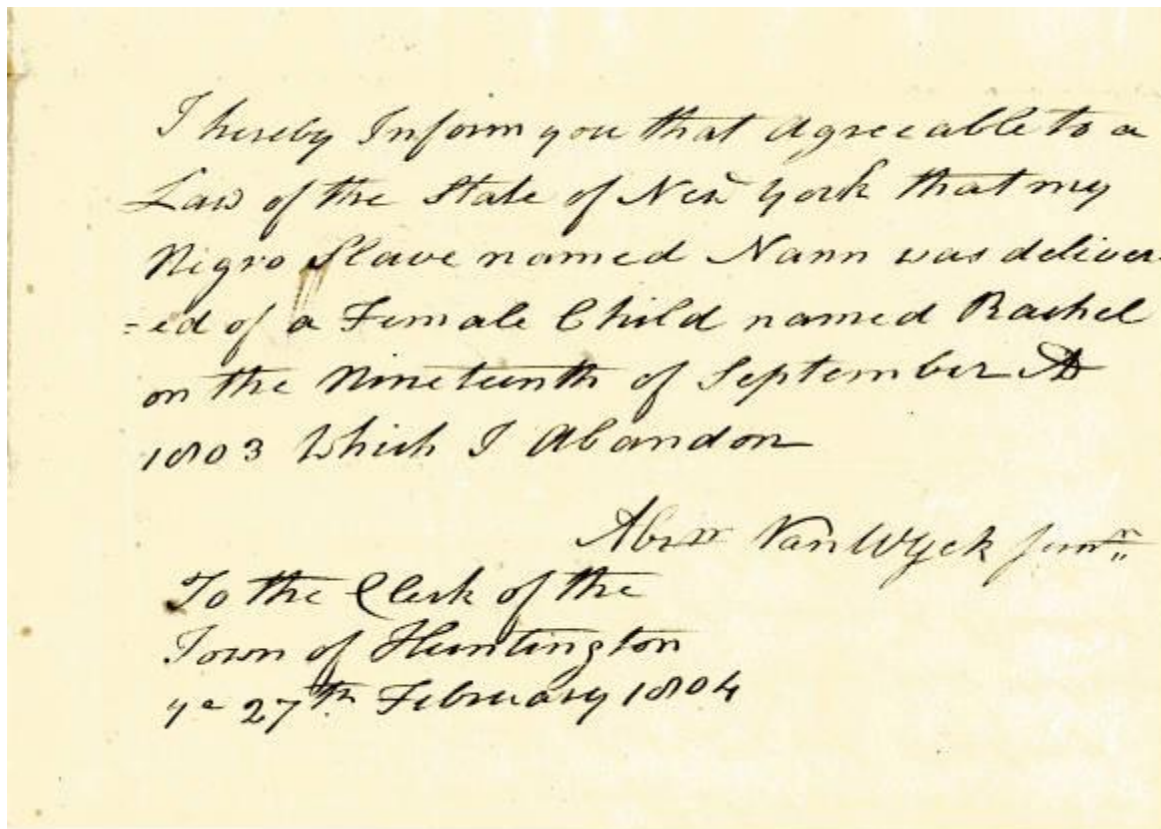 I hereby Inform you that Agreeable to a
Law of the State of New York that my
Nigro Slave named Nann was deliver-
=ed of a Female Child named Rachel
on the Nineteenth of September AD
1803 Which I Abandon
Abrm Van Wyck Junr
To the Clerk of the
Town of Huntington
ye 27th February 1804